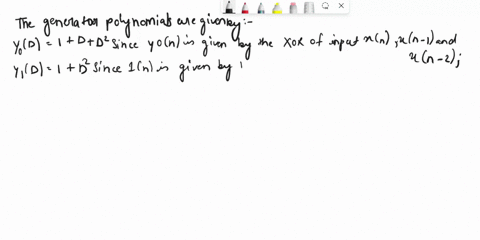 The generator polynomials are given by:-
Y₀(D) = 1 + D + D² Since y0(n) is given by the XOR of input x(n), x(n-1) and
x(n-2);
Y₁(D) = 1 + D² Since 1(n) is given by